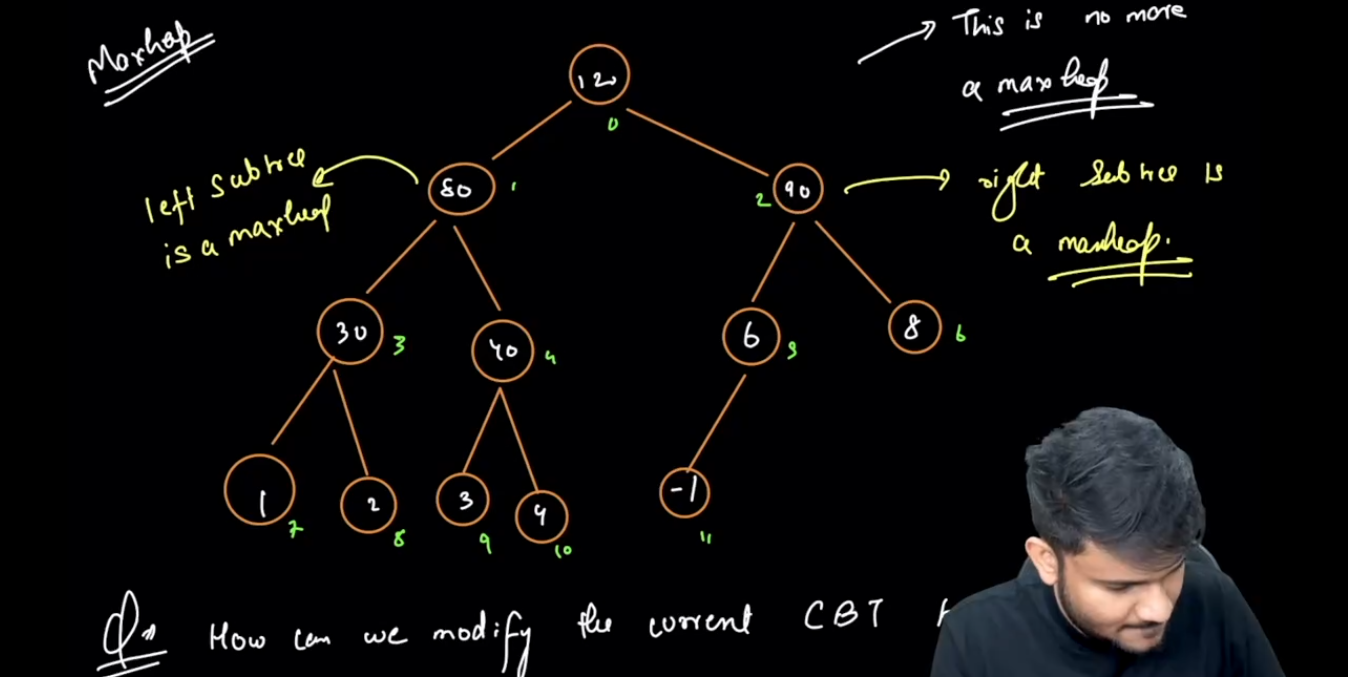 Maxheap
This is no more
a maxheap
12
0
left subtree
is a maxheap
80
1
2
90
right Subtree is
a maxheap.
30
3
40
4
6
5
8
6
1
7
2
8
3
9
4
10
-1
11
Q
How can we modify the current CBT